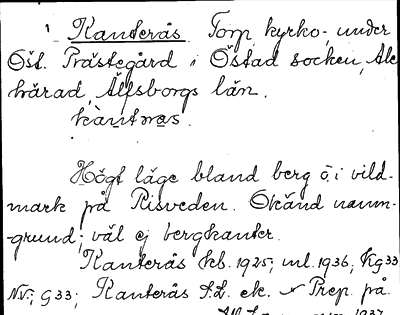 Kanterås. Torp, kyrko-, under
Öst. Prästegård i Östad socken, Ale
härad, Älfsborgs län.
kàntras.
Högt läge bland berg o. i vild-
mark på Risveden. Okänd namn-
grund; väl ej bergkanter.
Kanterås kb. 1925; ml. 1936; Kg 33
Nv.; G 33; Kanterås J.Z. ek. Prep. på.
1937